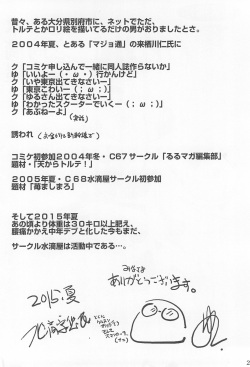 昔々、ある大分県別府市に、ネットでただ、
トルテとかロリ絵を描いてるだけの男がおりましたとさ。
2004年夏、とある「マジョ通」の来栖川仁氏に
ク「コミケ申し込んで一緒に同人誌作らないか」
ゆ「いいよー(・ω・)行かんけど」
ク「いや東京出てきなさいー」
ゆ「東京こわいー(；ω；)」
ク「ゆるさん出てきなさいー」
ゆ「わかったスクーターでいくー(；ω；)」
ク「あぶねーよ」
誘われ
コミケ初参加2004年冬・C67サークル「るるマガ編集部」
題材・「天からトルテ！」
2005年夏・C68水滴屋サークル初参加
題材・「苺ましまろ」
そして2015年夏
あの頃より体重は30キロ以上肥え、
腰痛かかえ中年デブと化した今もまだ、
サークル水滴屋は活動中である…。
みなさま
ありがとうございます
2015.夏
2